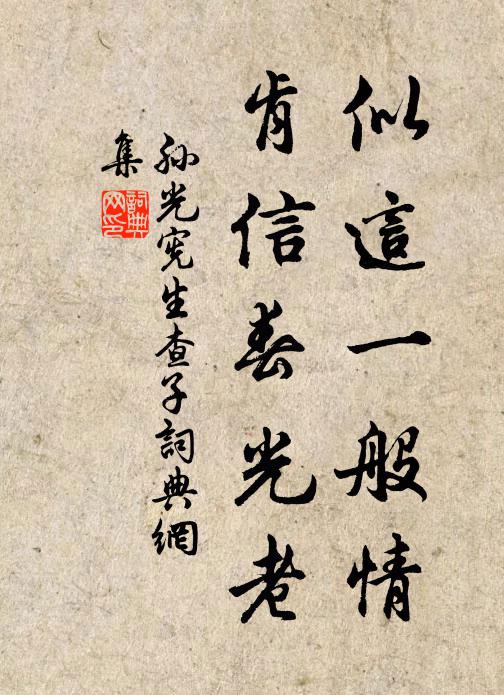 似這一般情
肯信春光老
孫光宪生查子詞典網
集
詞典
网印